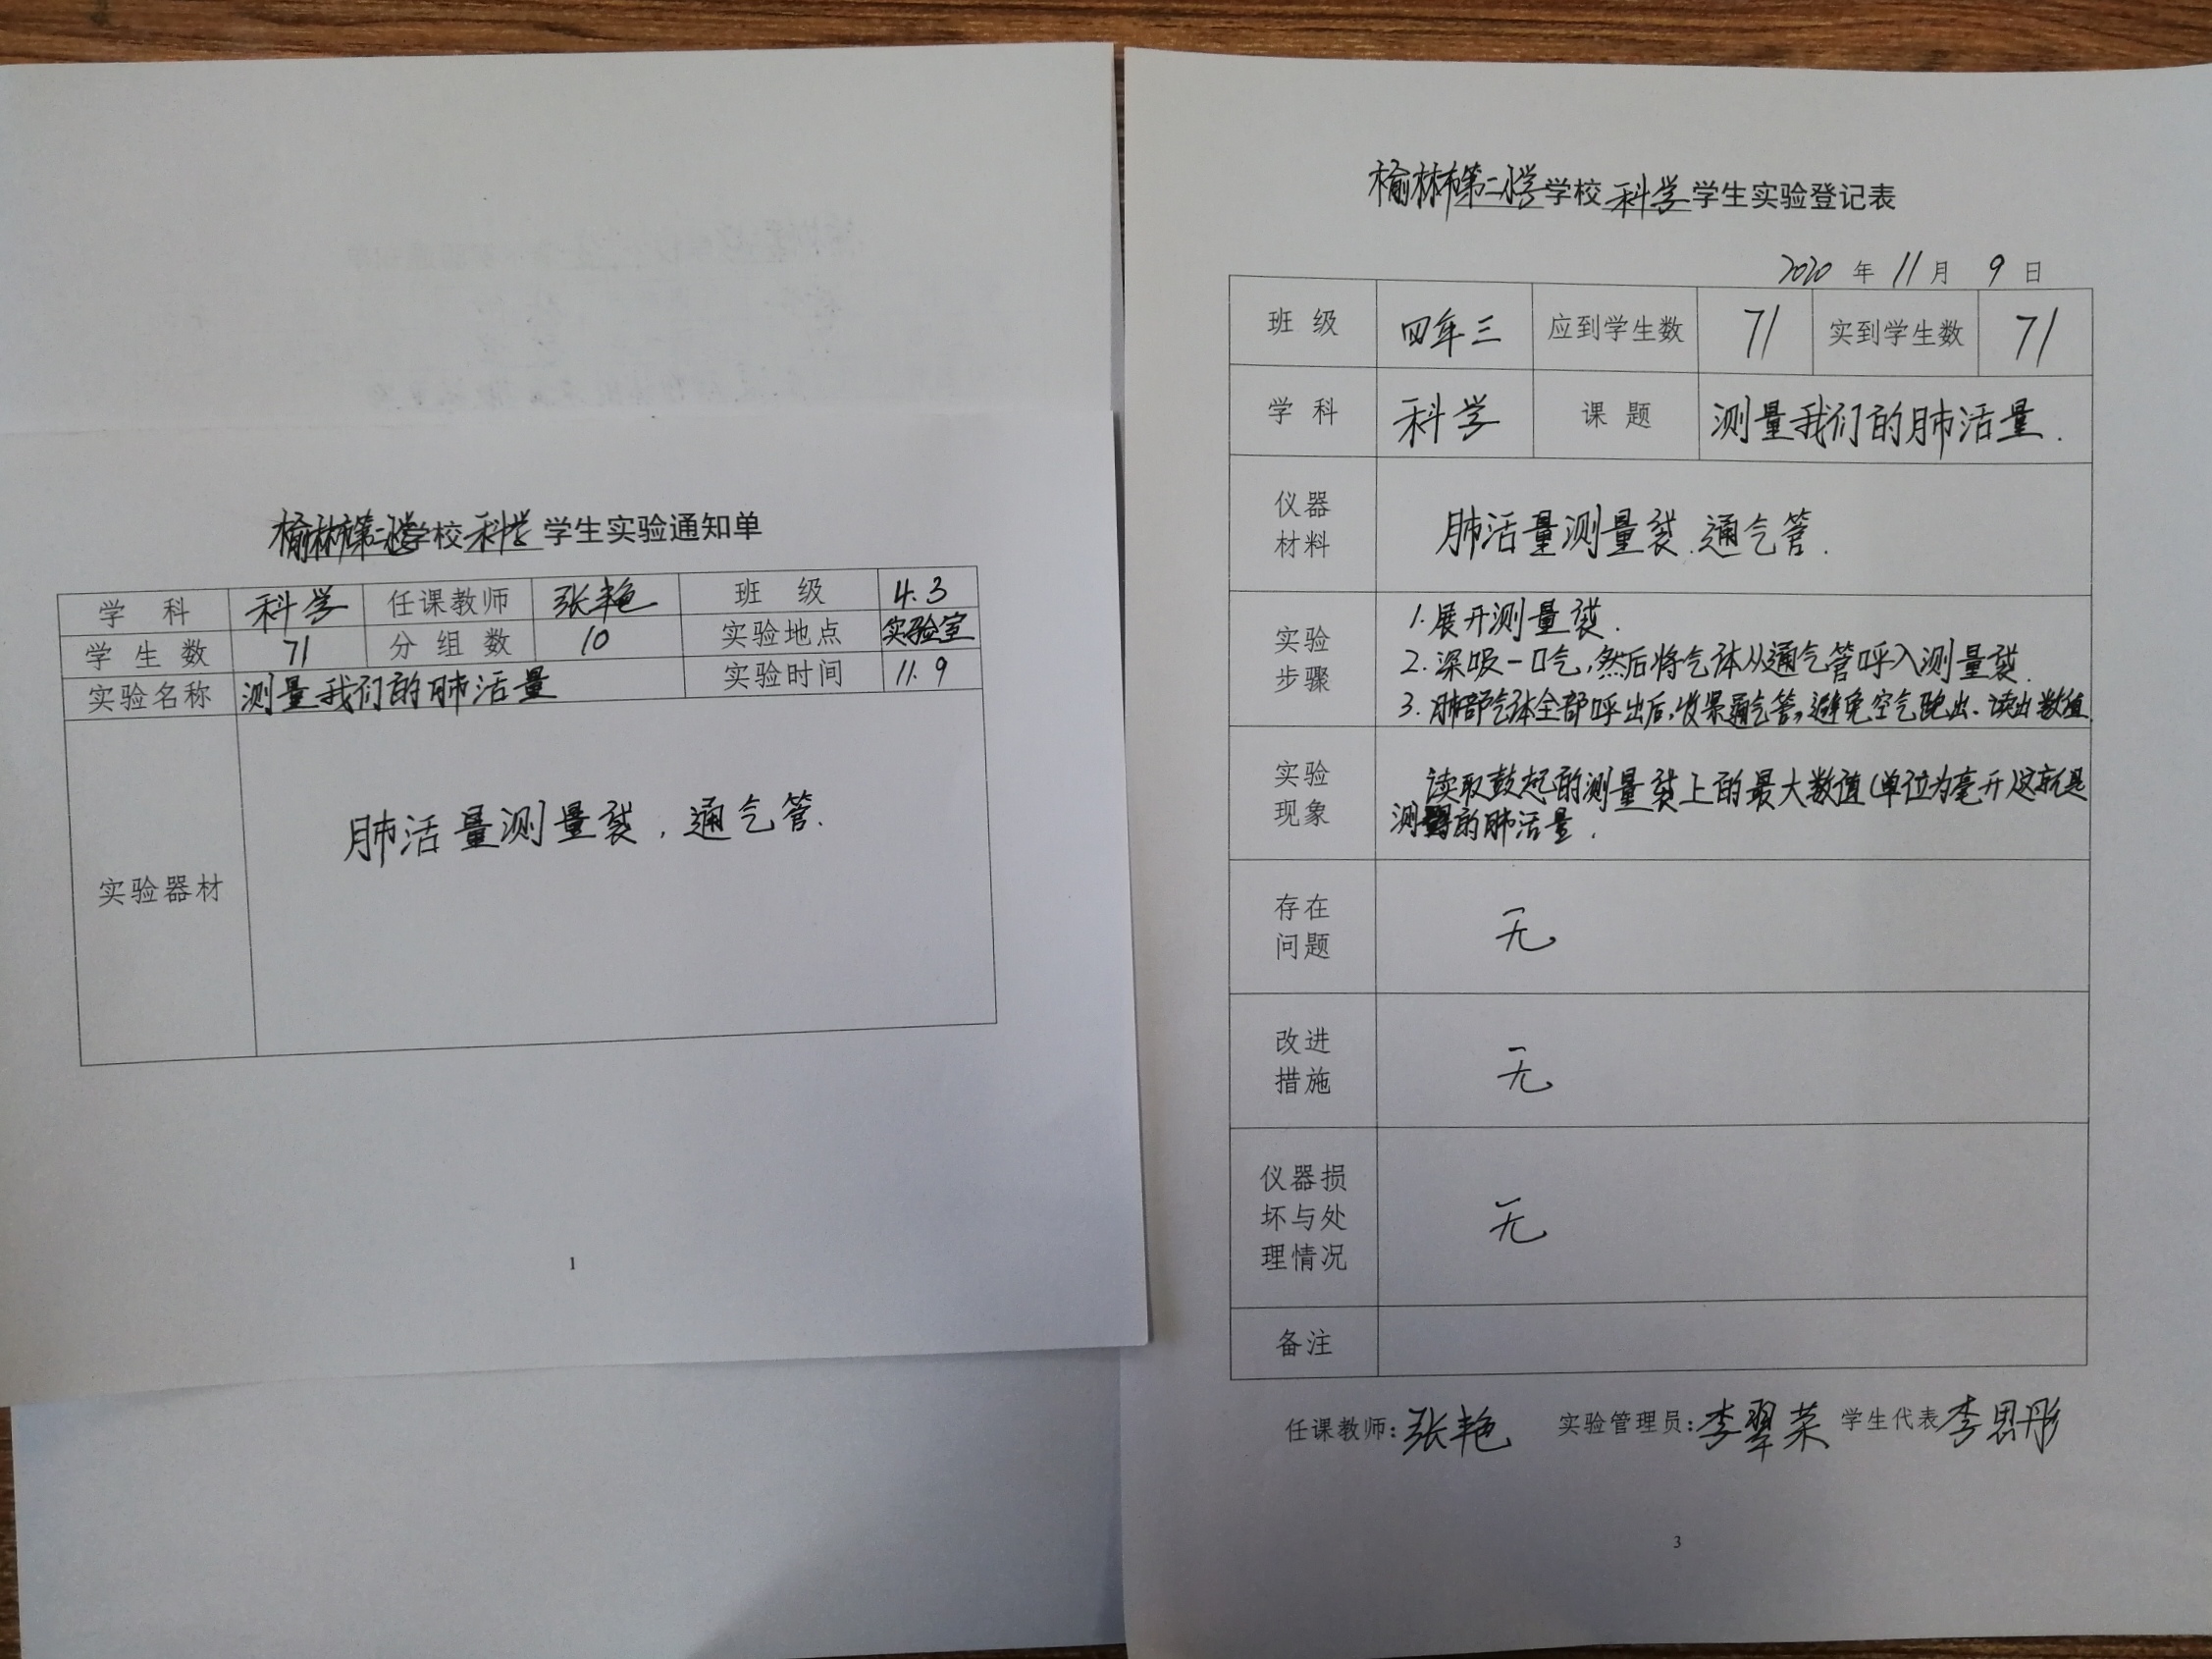 榆林市第二小学学校科学学生实验通知单
学 科 科学 任课教师 张艳 班 级 4.3
学生数 71 分组数 10 实验地点 实验室
实验名称 测量我们的肺活量 实验时间 11.9
实验器材 肺活量测量袋,通气管.
1
榆林市第二小学学校科学学生实验登记表
2020 年 11 月 9 日
班 级 四年三 应到学生数 71 实到学生数 71
学 科 科学 课 题 测量我们的肺活量.
仪器
材料
肺活量测量袋.通气管.
实验
步骤
1.展开测量袋.
2.深吸一口气,然后将气体从通气管呼入测量袋.
3.肺部气体全部呼出后,收紧通气管,避免空气跑出、读出数值
实验
现象
读取鼓起的测量袋上的最大数值(单位为毫升)这就是
测得的肺活量.
存在
问题
无
改进
措施
无
仪器损
坏与处
理情况
无
备注
任课教师:张艳 实验管理员:李翠荣 学生代表李思彤
3